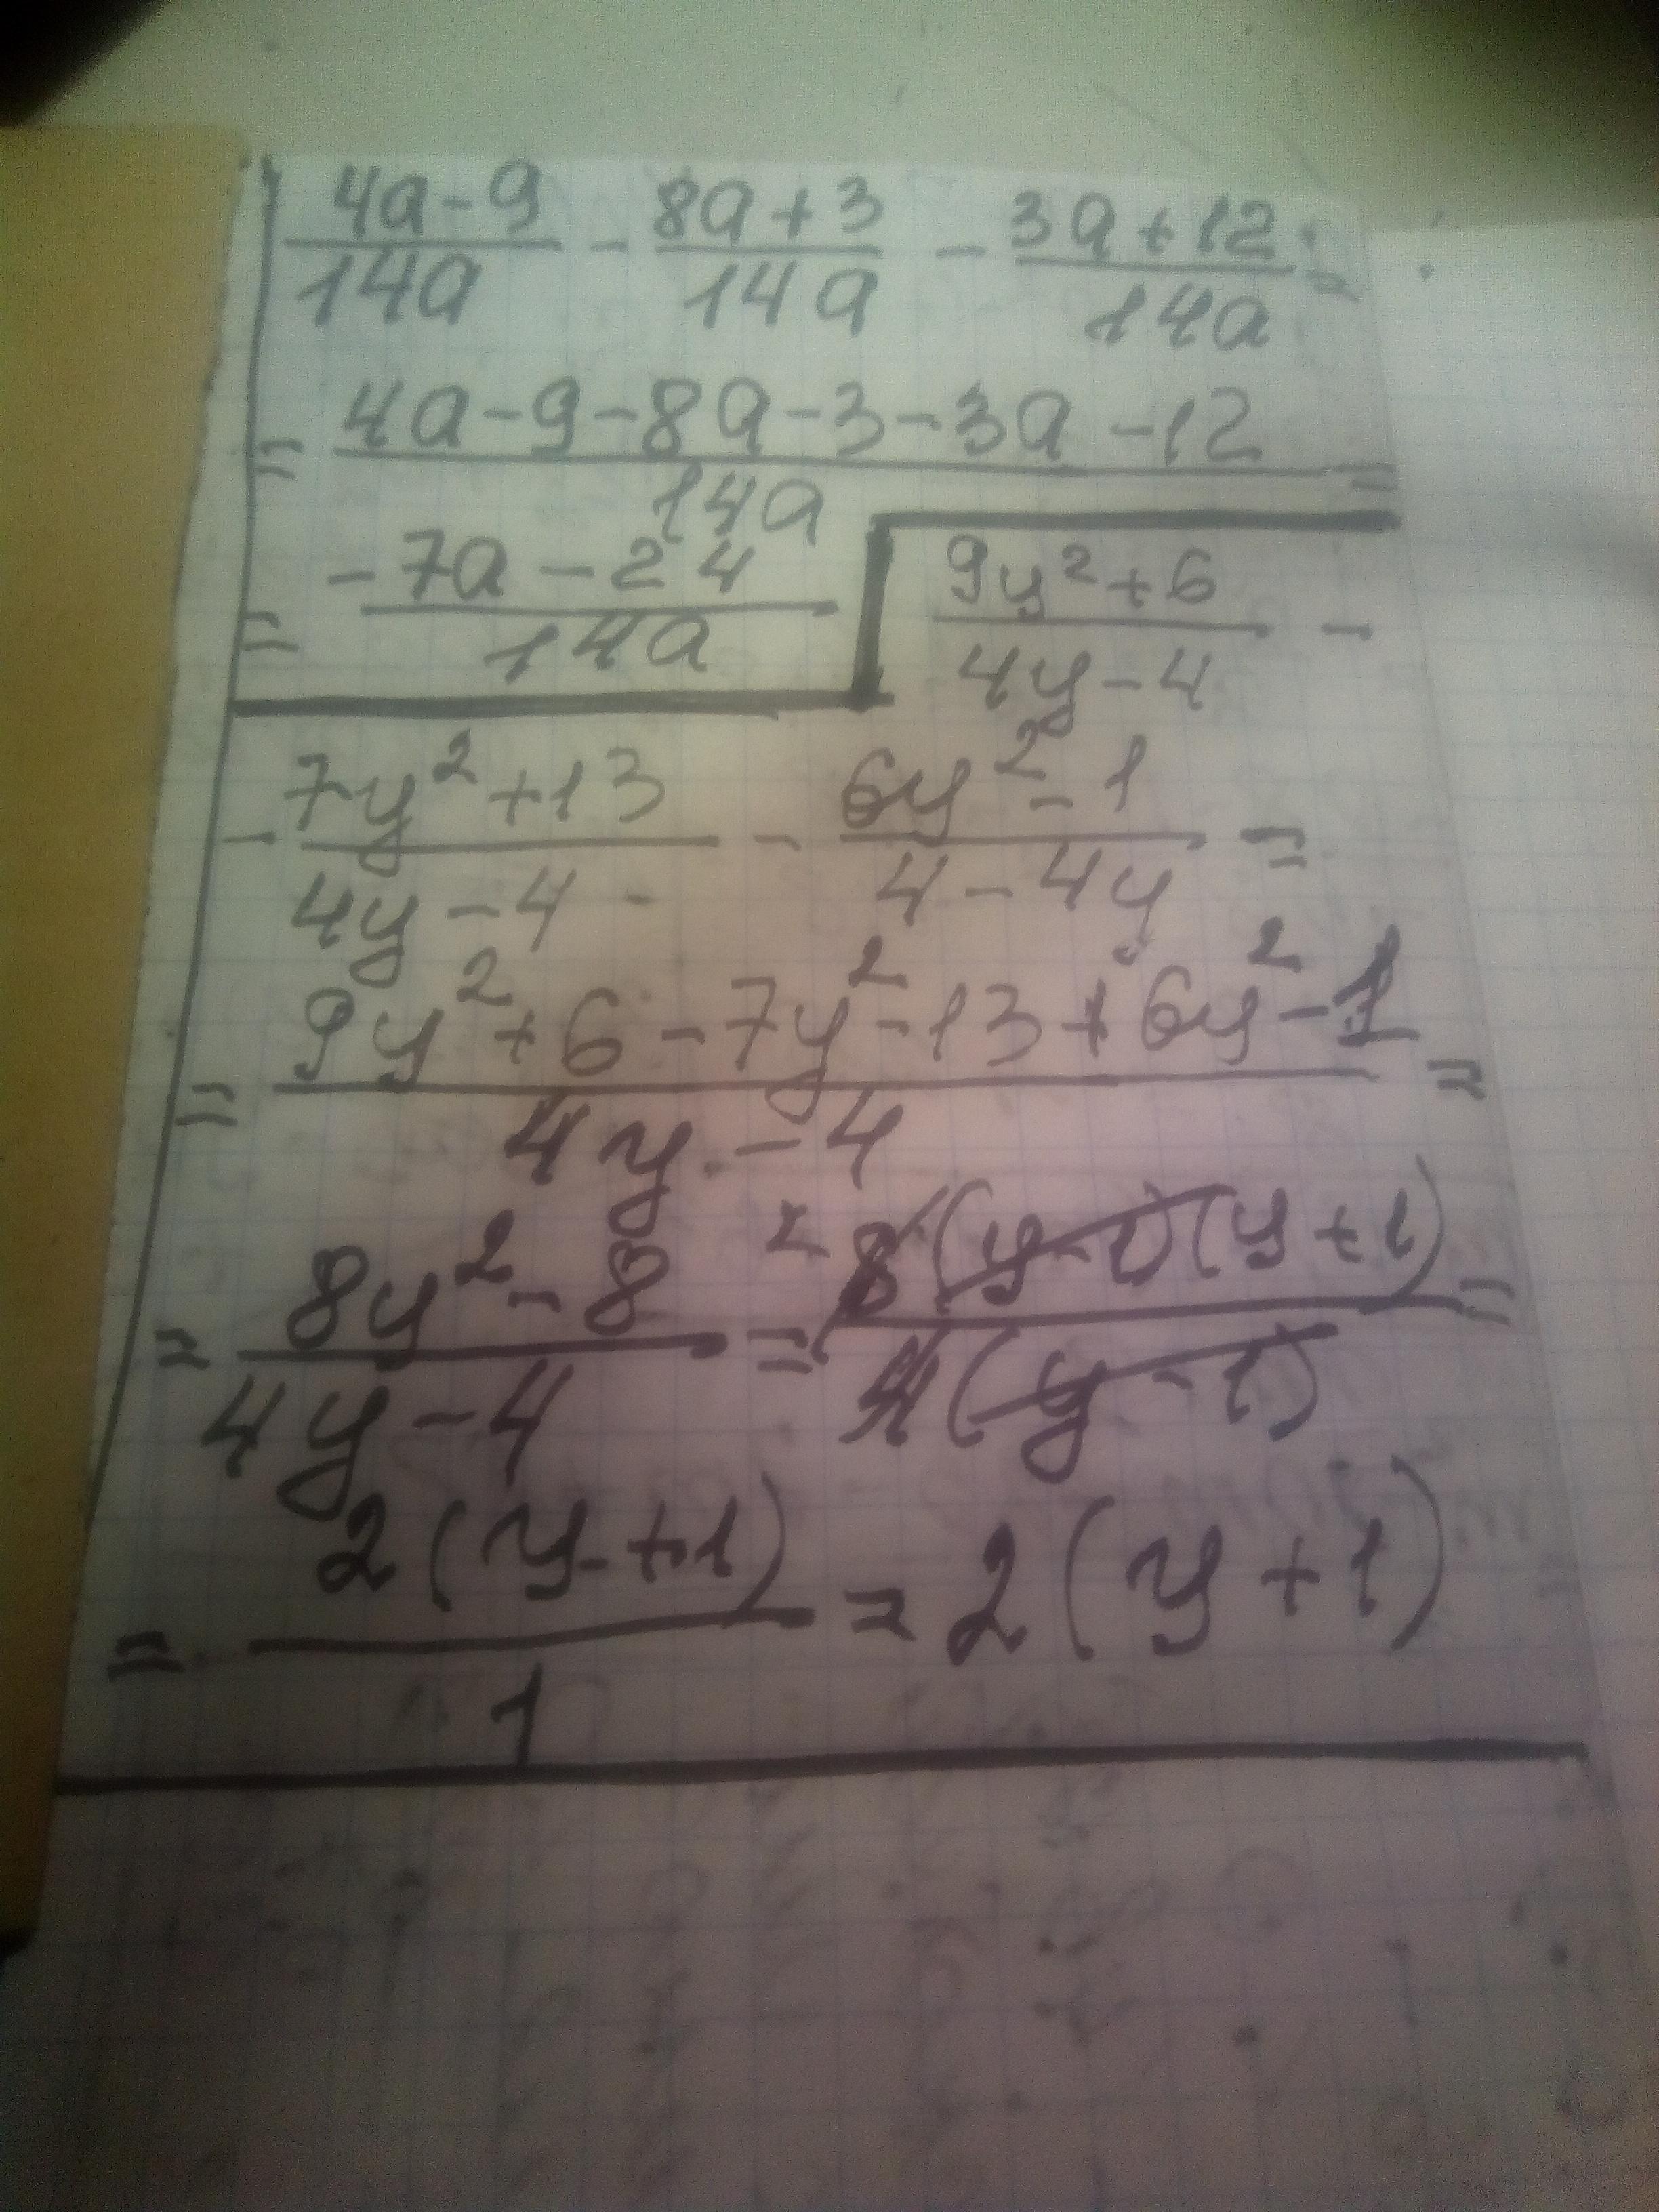 4a-9/14a - 8a+3/14a - 3a+12/14a =
= 4a-9-8a-3-3a-12/14a =
= -7a-24/14a
9y²+6/4y-4 -
- 7y²+13/4y-4 - 6y²-1/4-4y =
= 9y²+6-7y²-13+6y²-1/4y-4 =
= 8y²-8/4y-4 = ²8(y-1)(y+1)/4(y-1) =
= 2(y+1)/1 = 2(y+1)